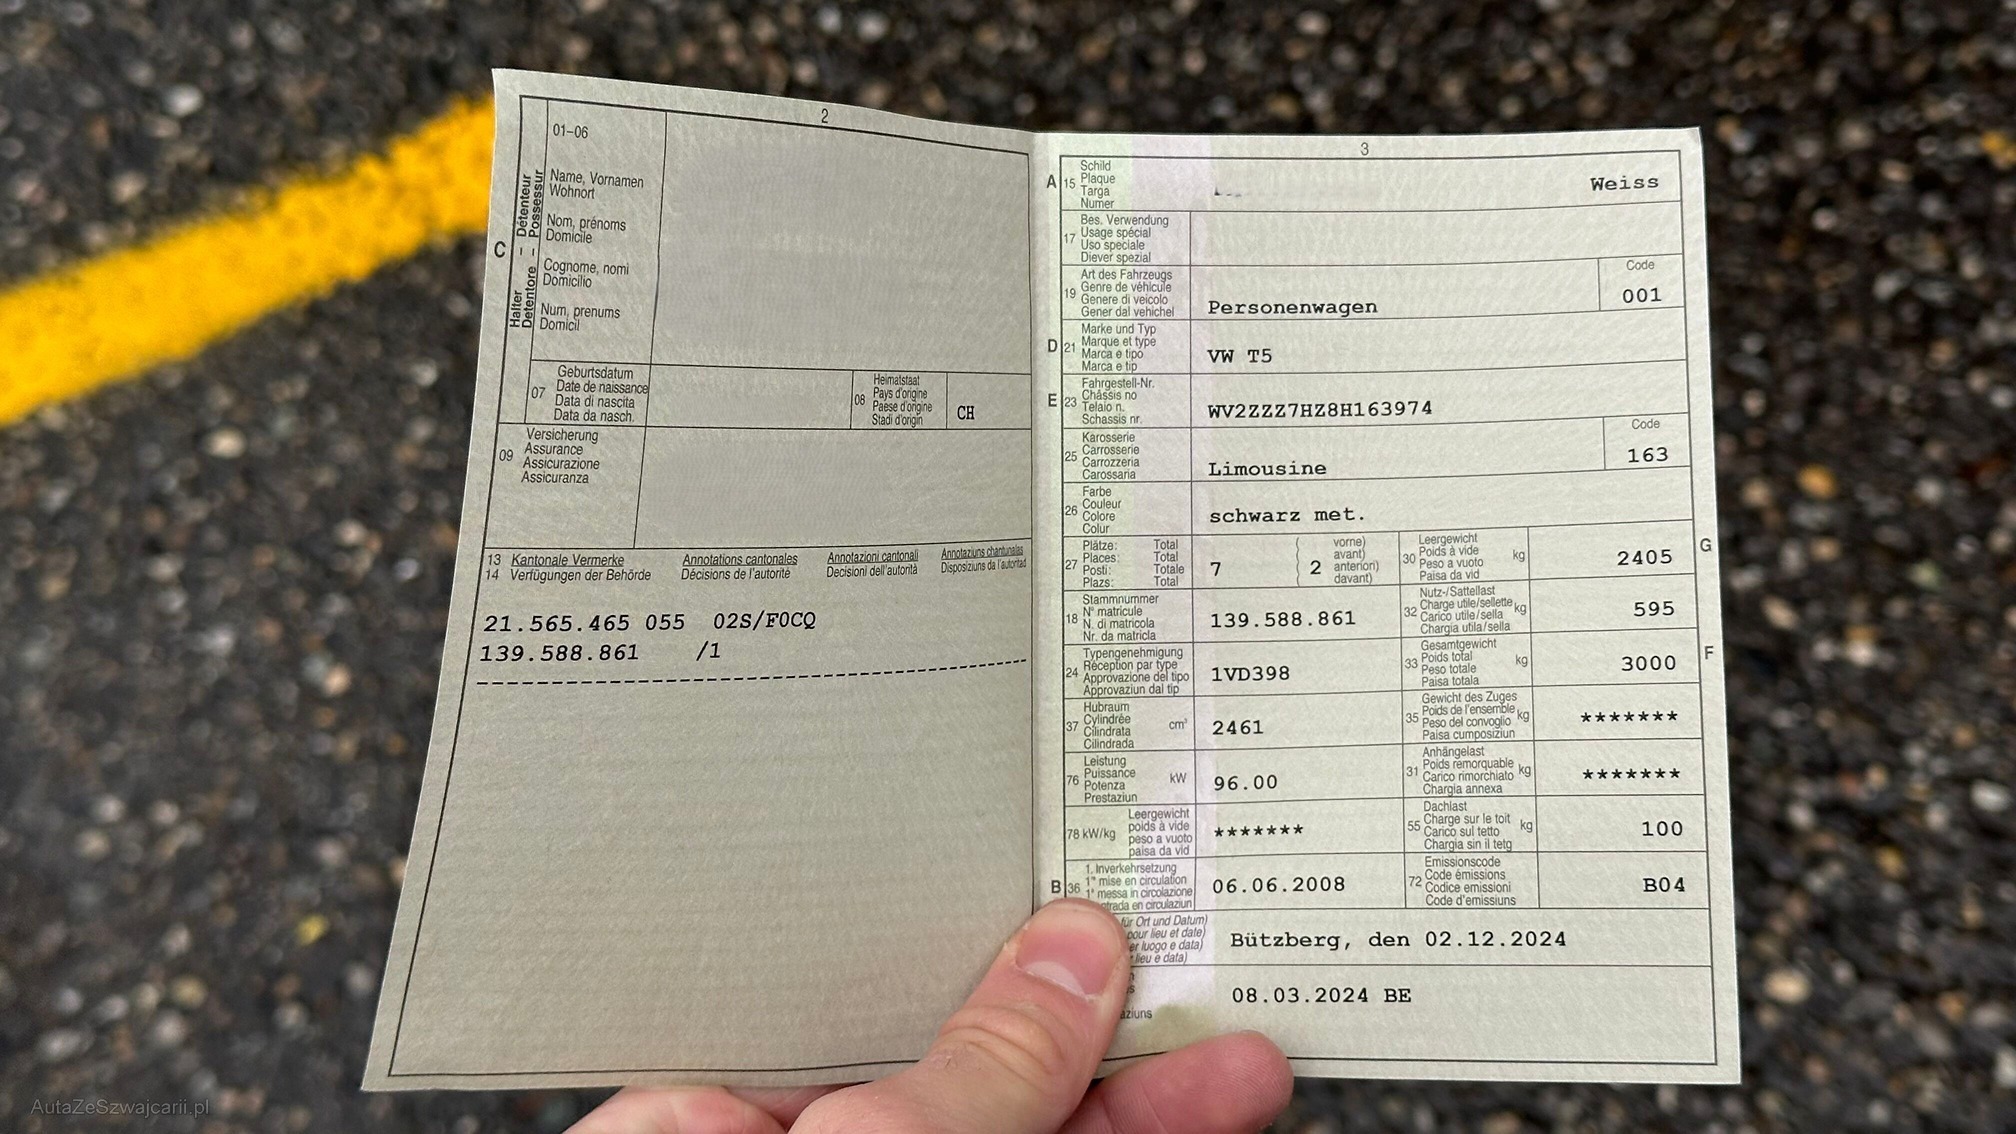 2
01-06
Name, Vornamen
Wohnort
Nom, prénoms
Domicile
Cognome, nomi
Domicilio
Num, prenums
Domicil
C
Halter – Détenteur
Detentore – Possessur
07
Geburtsdatum
Date de naissance
Data di nascita
Data da nasch.
08
Heimatstaat
Pays d'origine
Paese d'origine
Stadi d'origin
CH
09
Versicherung
Assurance
Assicurazione
Assicuranza
13 Kantonale Vermerke Annotations cantonales Annotazioni cantonali Annotaziuns chantunalas
14 Verfügungen der Behörde Décisions de l'autorité Decisioni dell'autorità Disposiziuns da l'autoritad
21.565.465 055 02S/F0CQ
139.588.861 /1
3
A 15
Schild
Plaque
Targa
Numer
Weiss
17
Bes. Verwendung
Usage spécial
Uso speciale
Diever spezial
19
Art des Fahrzeugs
Genre de véhicule
Genere di veicolo
Gener dal vehichel
Personenwagen
Code
001
D 21
Marke und Typ
Marque et type
Marca e tipo
Marca e tip
VW T5
E 23
Fahrgestell-Nr.
Châssis no
Telaio n.
Schassis nr.
WV2ZZZ7HZ8H163974
25
Karosserie
Carrosserie
Carrozzeria
Carossaria
Limousine
Code
163
26
Farbe
Couleur
Colore
Colur
schwarz met.
27
Plätze: Total
Places: Total
Posti: Totale
Plazs: Total
7
2
vorne)
avant)
anteriori)
davant)
30
Leergewicht
Poids à vide kg
Peso a vuoto
Paisa da vid
2405
G
18
Stammnummer
N° matricule
N. di matricola
Nr. da matricla
139.588.861
32
Nutz-/Sattellast
Charge utile/sellette kg
Carico utile/sella
Chargia utila/sella
595
24
Typengenehmigung
Réception par type
Approvazione del tipo
Approvaziun dal tip
1VD398
33
Gesamtgewicht
Poids total kg
Peso totale
Paisa totala
3000
F
37
Hubraum
Cylindrée cm³
Cilindrata
Cilindrada
2461
35
Gewicht des Zuges
Poids de l'ensemble kg
Peso del convoglio
Paisa cumposiziun
*******
76
Leistung
Puissance kW
Potenza
Prestaziun
96.00
31
Anhängelast
Poids remorquable kg
Carico rimorchiato
Chargia annexa
*******
78 kW/kg
Leergewicht
poids à vide
peso a vuoto
paisa da vid
*******
55
Dachlast
Charge sur le toit kg
Carico sul tetto
Chargia sin il tetg
100
B 36
1. Inverkehrsetzung
1re mise en circulation
1a messa in circolazione
entrada en circulaziun
06.06.2008
72
Emissionscode
Code émissions
Codice emissioni
Code d'emissiuns
B04
für Ort und Datum)
pour lieu et date)
er luogo e data)
lieu e data)
Bützberg, den 02.12.2024
08.03.2024 BE
aziuns
AutaZeSzwajcarii.pl